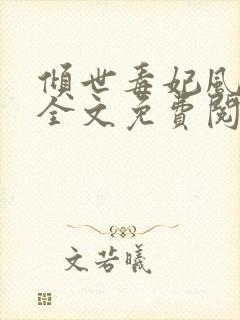 傾世毒妃風
全文免費閱
文若曦